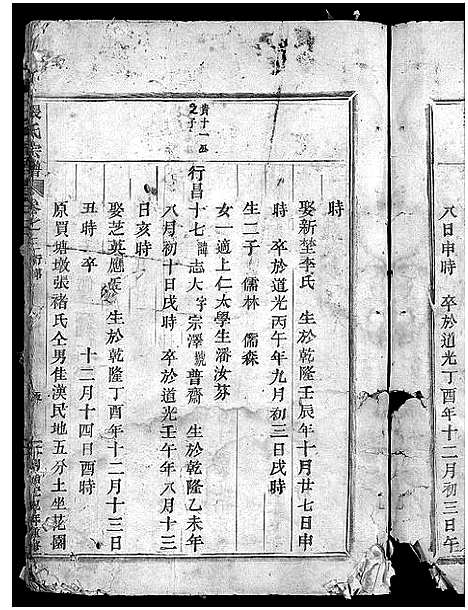 八日申時　卒於道光丁酉年十二月初三日午
時
娶新塋李氏　生於乾隆壬辰年十月廿七日申
時　卒於道光丙午年九月初三日戌時
生二子　儒林　儒森
女一適上仁太學生潘汝芬
貴十一公之子
行昌十七諱志大字宗澤號普齋　生於乾隆乙未年
八月初十日戌時　卒於道光壬午年八月十三
日亥時
娶芝英應氏　生於乾隆丁酉年十二月十三日
丑時　卒　十二月十四日酉時
原買塘墩張褚氏仝男佳漢民地五分土坐花園
張氏宗譜　卷之三行第